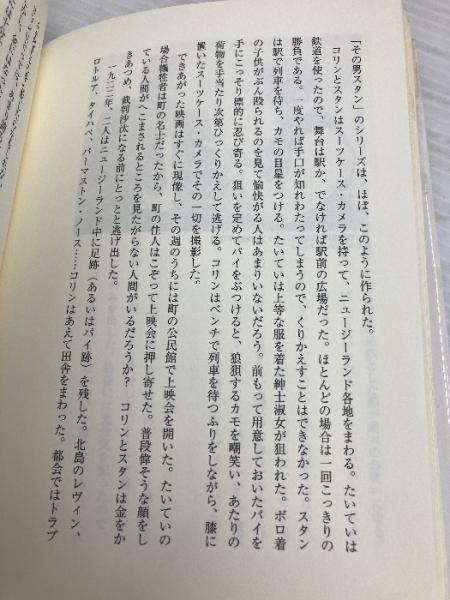 「その男スタン」のシリーズは、ほぼ、このように作られた。
コリンとスタンはスーツケース・カメラを持って、ニュージーランド各地をまわる。たいていは
鉄道を使ったので、舞台は駅か、でなければ駅前の広場だった。ほとんどの場合は一回こっきりの
勝負である。一度やれば手口が知れわたってしまうので、くりかえすことはできなかった。スタン
は駅で列車を待ち、カモの目星をつける。たいていは上等な服を着た紳士淑女が狙われた。ボロ着
の子供がぶん殴られるのを見て愉快がる人はあまりいないだろう。前もって用意しておいたパイを
手にこっそり標的に忍び寄る。狙いを定めてパイをぶつけると、狼狽するカモを嘲笑い、あたりの
荷物を手当たり次第ひっくりかえして逃げる。コリンはベンチで列車を待つふりをしながら、膝に
置いたスーツケース・カメラでその一切を撮影した。
できあがった映画はすぐに現像し、その週のうちには町の公民館で上映会を開いた。たいていの
場合犠牲者は町の名士だったから、町の住人はこぞって上映会に押し寄せた。普段偉そうな顔をし
ている人間がへこまされるところを見たがらない人間がいるだろうか？　コリンとスタンは金をか
きあつめ、裁判沙汰になる前にとっとと逃げ出した。
一九二二年、二人はニュージーランド中に足跡（あるいはパイ跡）を残した。北島のレヴィン、
ロトルア、タイハペ、パーマストン・ノース……コリンはあえて田舎をまわった。都会ではトラブ